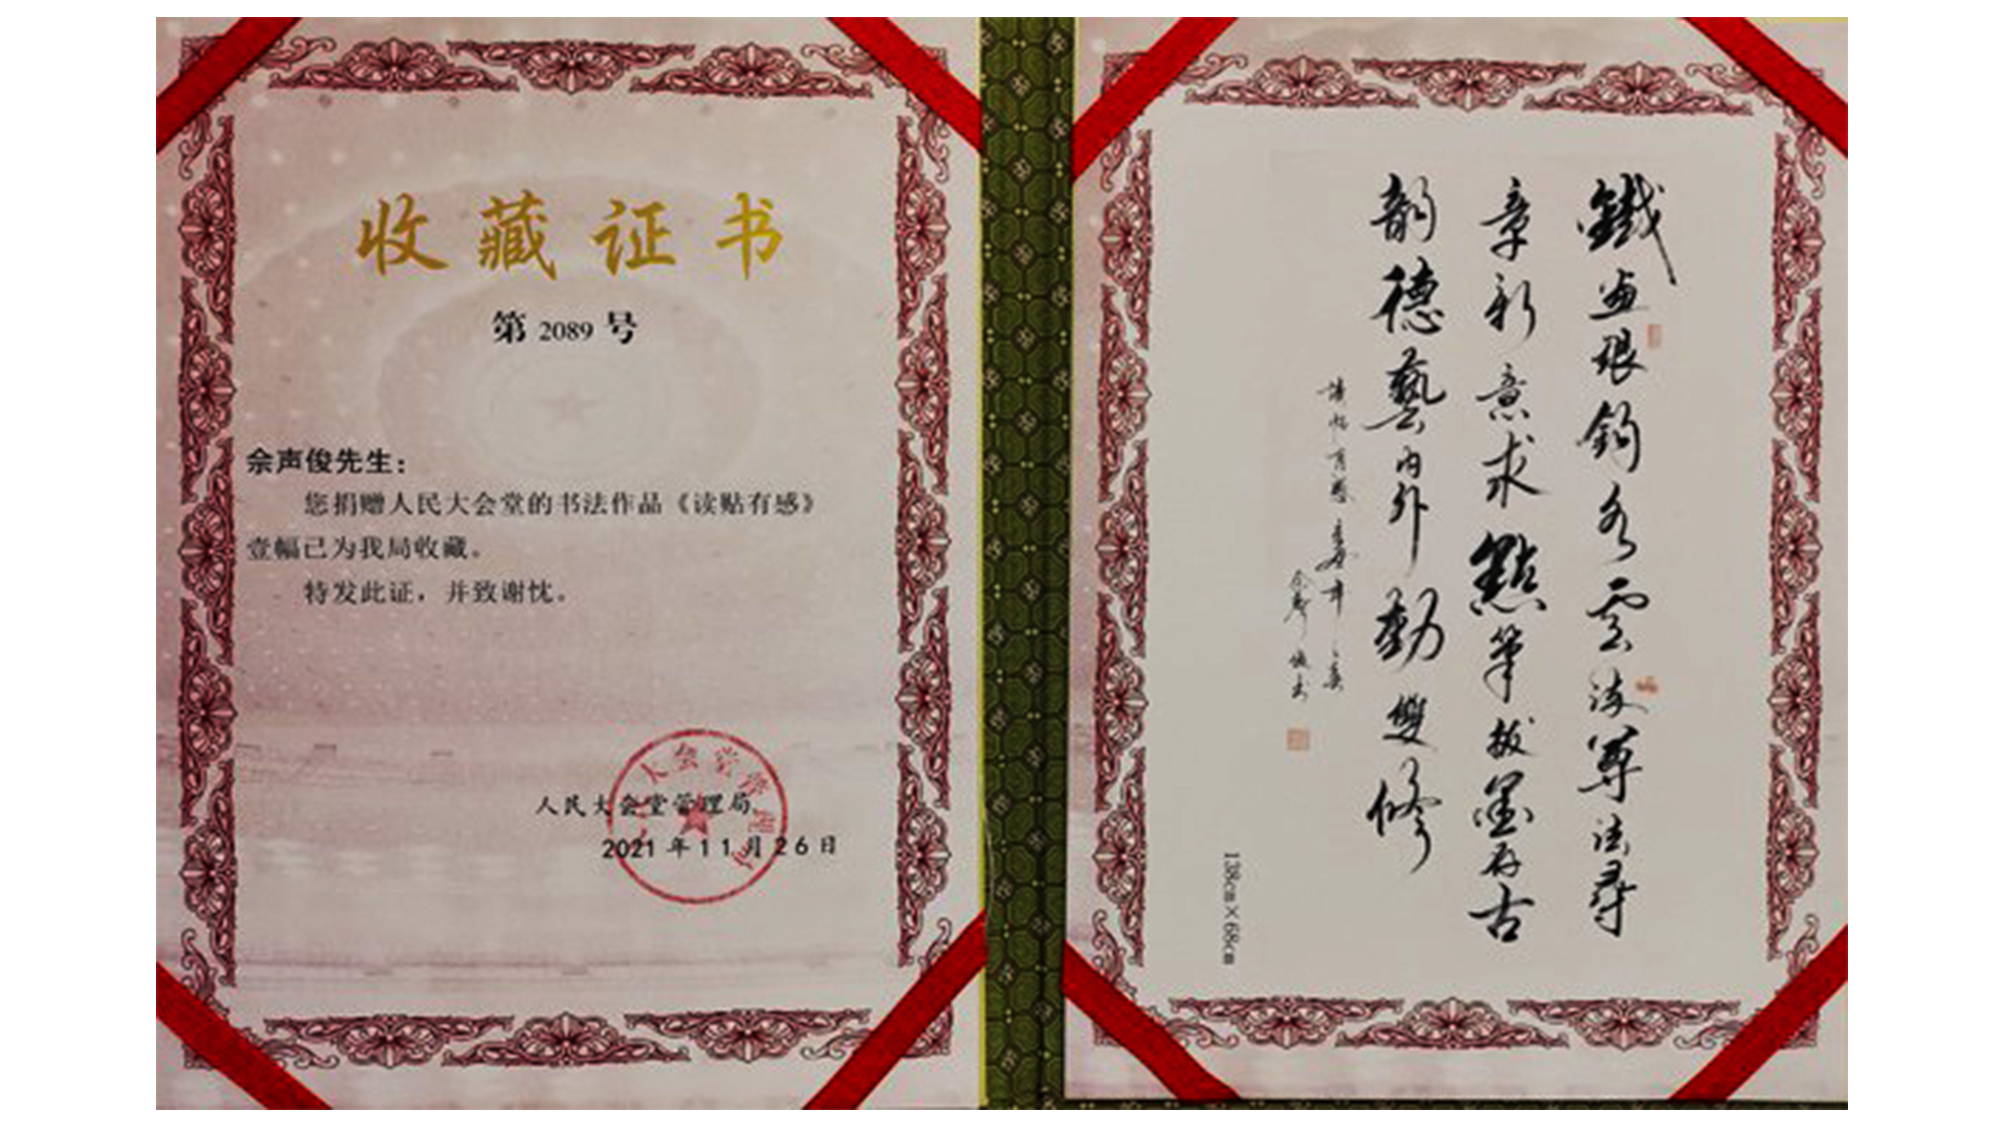 收藏证书
第 2089 号
佘声俊先生：
您捐赠人民大会堂的书法作品《读贴有感》
壹幅已为我局收藏。
特发此证，并致谢忱。
人民大会堂管理局
2021年11月26日
大会堂管理局
鐵画银鈎雲流尊法尋
章新意求點筆拔墨存古
韵德藝内外勤雙修
读帖有感
佘声俊书
138cm×68cm